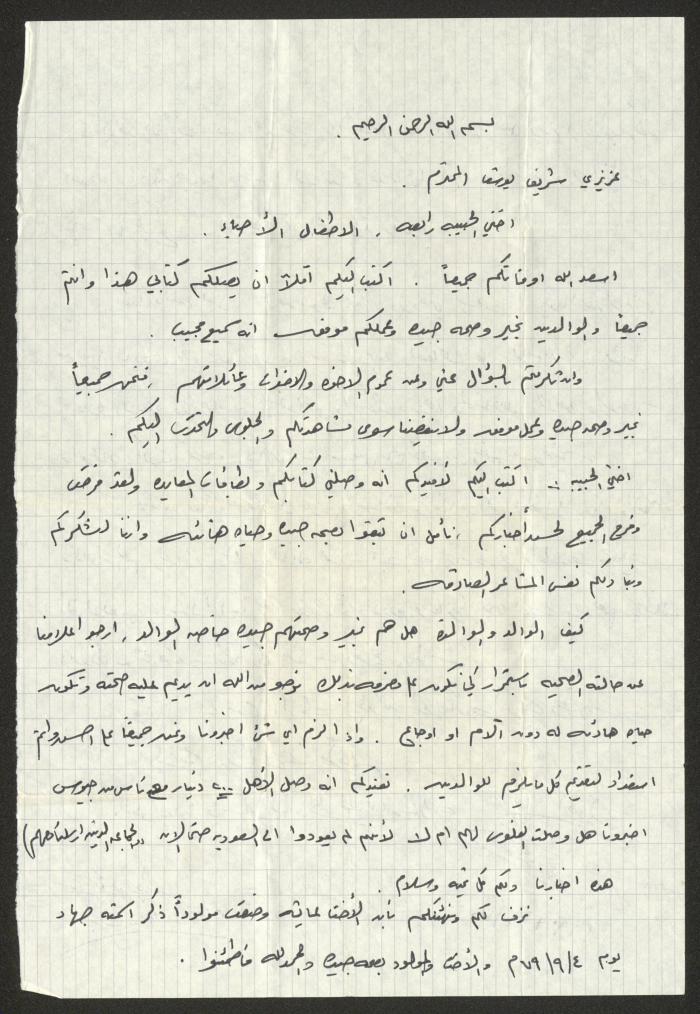 بسم الله الرحمن الرحيم .
عزيزي شريف يوسف المحترم .
اختي الحبيبه رابعه ، الاطفال الأحباء .
اسعد الله اوقاتكم جميعاً . اكتب اليكم آملاً ان يصلكم كتابي هذا وانتم
جميعاً والوالدين بخير وصحه جيده وعملكم موفق انه سميع مجيب .
وان تكرمتم بالسؤال عني وعن عموم الاخوه والاخوات وعائلاتهم ، فنحن جميعاً
بخير وصحه جيده وعمل موفق ولا ينقصنا سوى مشاهدتكم والجلوس والتحدث اليكم .
اختي الحبيبه : اكتب اليكم لأفيدكم انه وصلني كتابكم وبطاقات المعايده ولقد فرحت
وفرح الجميع لحسن أخباركم ، نأمل ان تبقوا بصحه جيده وحياه هانئه واننا لنشكركم
ونبادلكم نفس المشاعر الصادقه .
كيف الوالد والوالدة هل هم بخير وصحتهم جيده خاصه الوالد ، ارجو اعلامنا
عن حالته الصحيه باستمرار كي نكون على معرفه بذلك نرجو من الله ان يديم عليه صحته وتكون
حياه هادئه له دون آلام او اوجاع . واذا لزم اي شئ اخبرونا ونحن جميعاً على احسن واتم
استعداد لتقديم كل ما يلزم للوالدين . نفيدكم انه وصل الأهل دينار مع ناس من جيوس
اخبرونا هل وصلت الفلوس لهم ام لا لأنهم لم يعودوا الى السعودية حتى الان (الجماعه الذين ارسلنا معهم)
هذه اخبارنا ولكم كل تحيه وسلام .
نزف لكم ونهنئكم بأن الأخت وضعت مولوداً ذكر اسمته جهاد
يوم ٤/٩/٧٩م والأخت والمولود بصحه جيده والحمد لله فاطمئنوا .